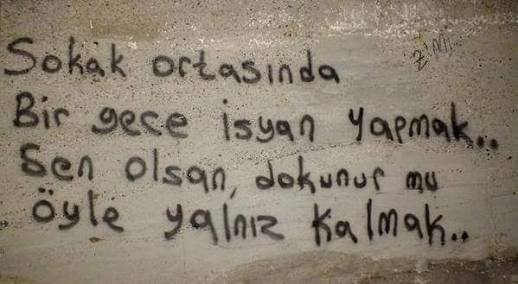 Sokak ortasında
Bir gece isyan yapmak..
Sen olsan, dokunur mu
öyle yalnız kalmak..